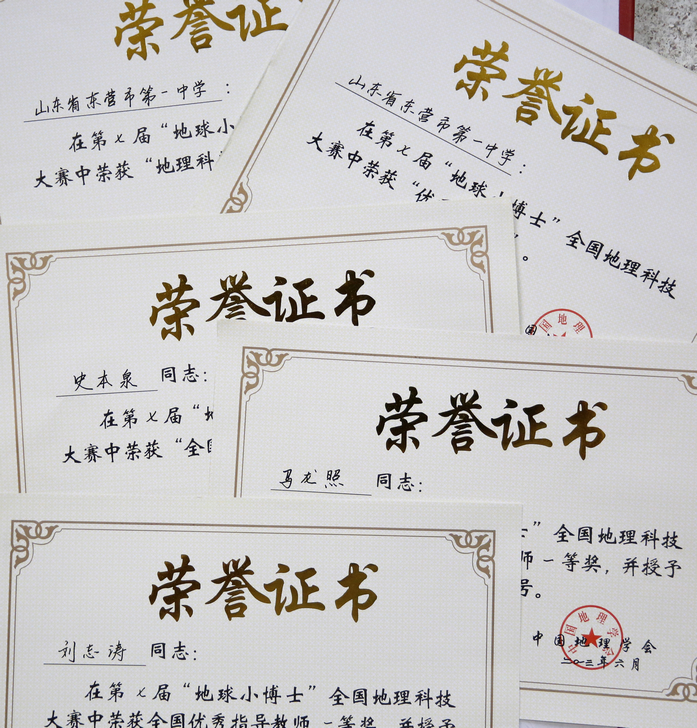 荣誉证
山东省东营市第一中学：
在第七届“地球小
大赛中荣获“地理科
荣誉证书
山东省东营市第一中学：
在第七届“地球小博士”全国地理科技
大赛中荣获“优
”。
国地理
荣誉证书
史本泉 同志：
在第七届“地
大赛中荣获“全国
荣誉证书
马龙照 同志：
”全国地理科技
师一等奖，并授予
号。
中国地理学会
中国地理学会
二〇一三年六月
荣誉证书
刘志涛 同志：
在第七届“地球小博士”全国地理科技
大赛中荣获全国优秀指导教师一等奖，并授予